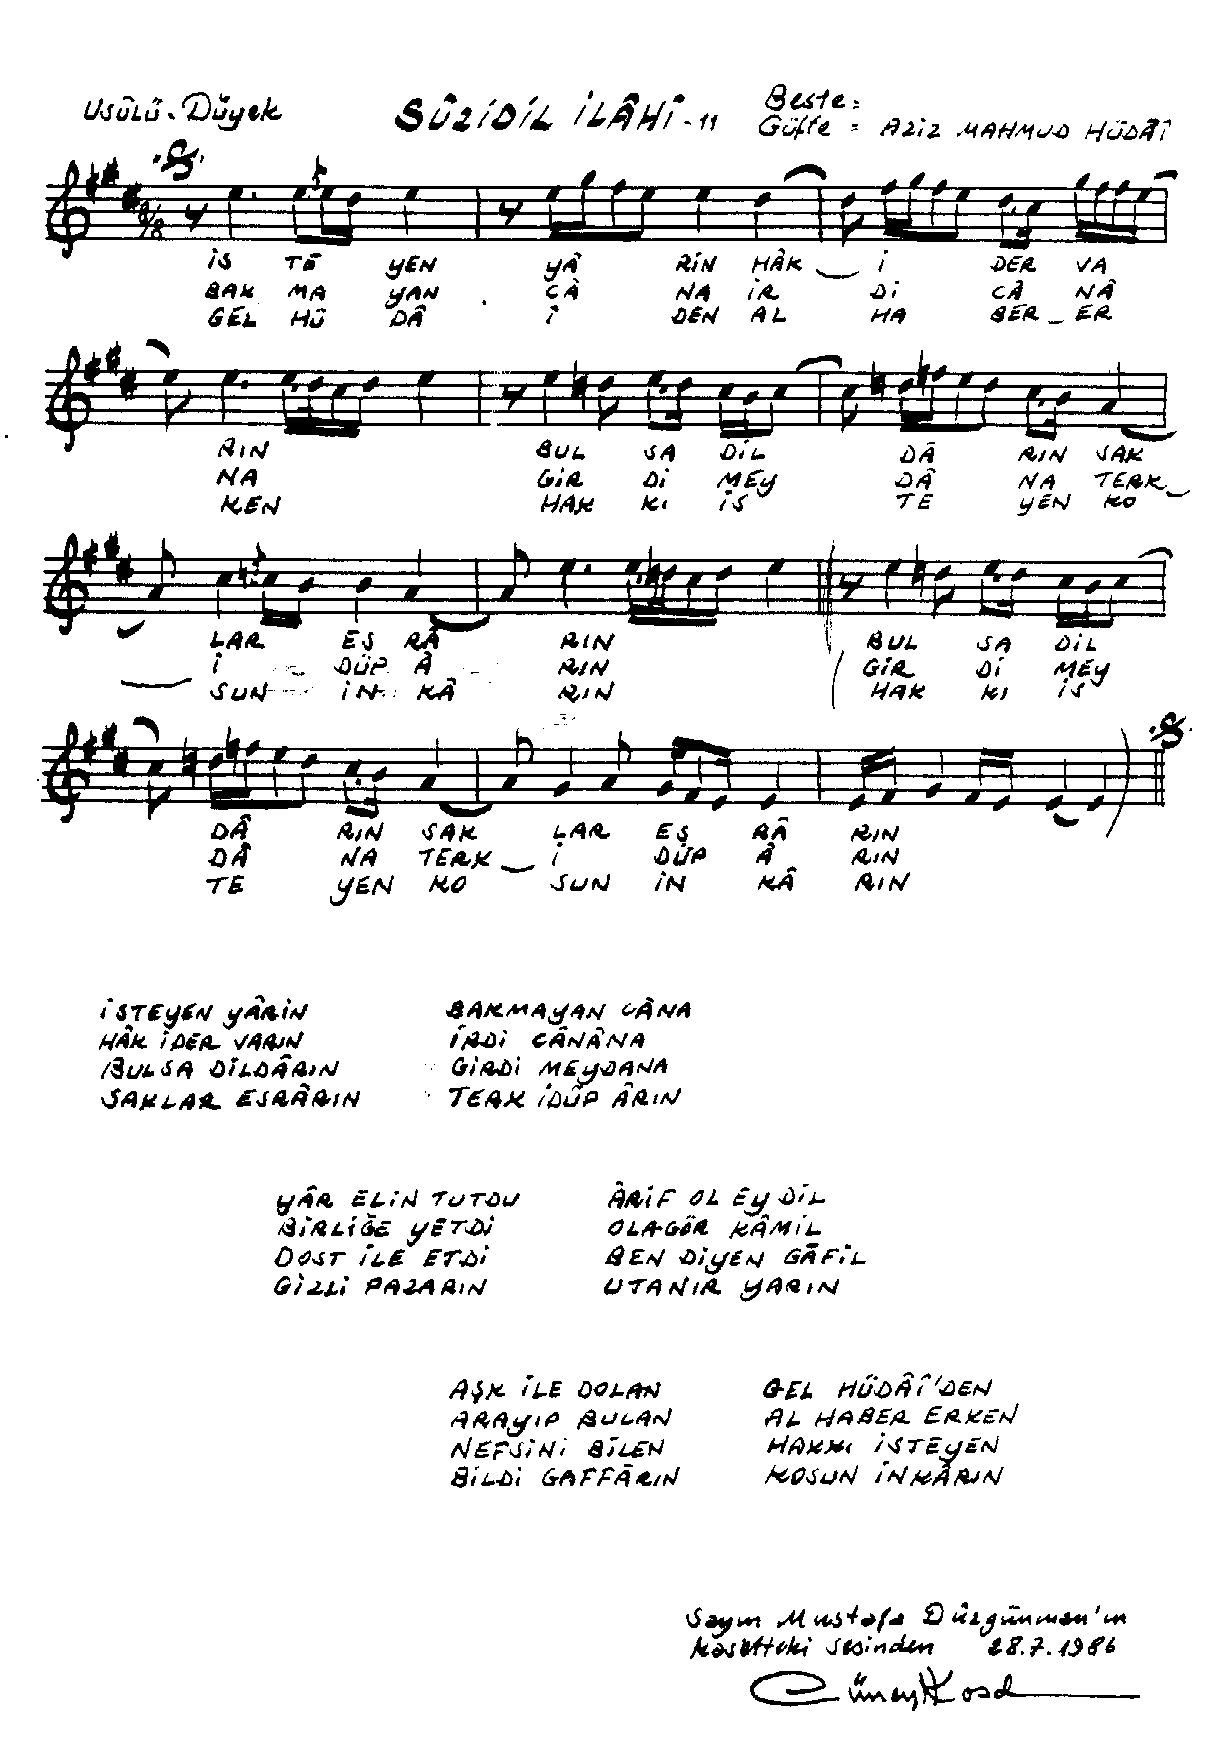 USÛLÜ. Düyek
SÛZİDİL İLÂHÎ - 11
Beste:
Güfte = AZİZ MAHMUD HÜDÂÎ
8/8
İS TE YEN YÂ RİN HÂK İ DER VA
BAK MA YAN CÂ NA İR Dİ CÂ NÂ
GEL HÜ DÂ Î DEN AL HA BER_ER
RIN BUL SA DİL DÂ RIN SAK
NA GİR Dİ MEY DÂ NA TERK
KEN HAK KI İS TE YEN KO
LAR ES RÂ RIN BUL SA DİL
İ DÜP Â RIN GİR Dİ MEY
SUN İN KÂ RIN HAK KI İS
DÂ RIN SAK LAR EŞ RÂ RIN
DÂ NA TERK İ DÜP Â RIN
TE YEN KO SUN İN KÂ RIN
İSTEYEN YÂRİN
HÂK İDER VARIN
BULSA DİLDÂRIN
SAKLAR ESRÂRIN
BAKMAYAN CÂNA
İRDİ CÂNÂNA
GİRDİ MEYDANA
TERK İDÜP ÂRIN
YÂR ELİN TUTDU
BİRLİĞE YETDİ
DOST İLE ETDİ
GİZLİ PAZARIN
ÂRİF OL EY DİL
OLAGÖR KÂMİL
BEN DİYEN GÂFİL
UTANIR YARIN
AŞK İLE DOLAN
ARAYIP BULAN
NEFSİNİ BİLEN
BİLDİ GAFFÂRIN
GEL HÜDÂÎ'DEN
AL HABER ERKEN
HAKKI İSTEYEN
KOSUN İNKÂRIN
Sayın Mustafa Düzgünman'ın
kasetteki sesinden 28.7.1986